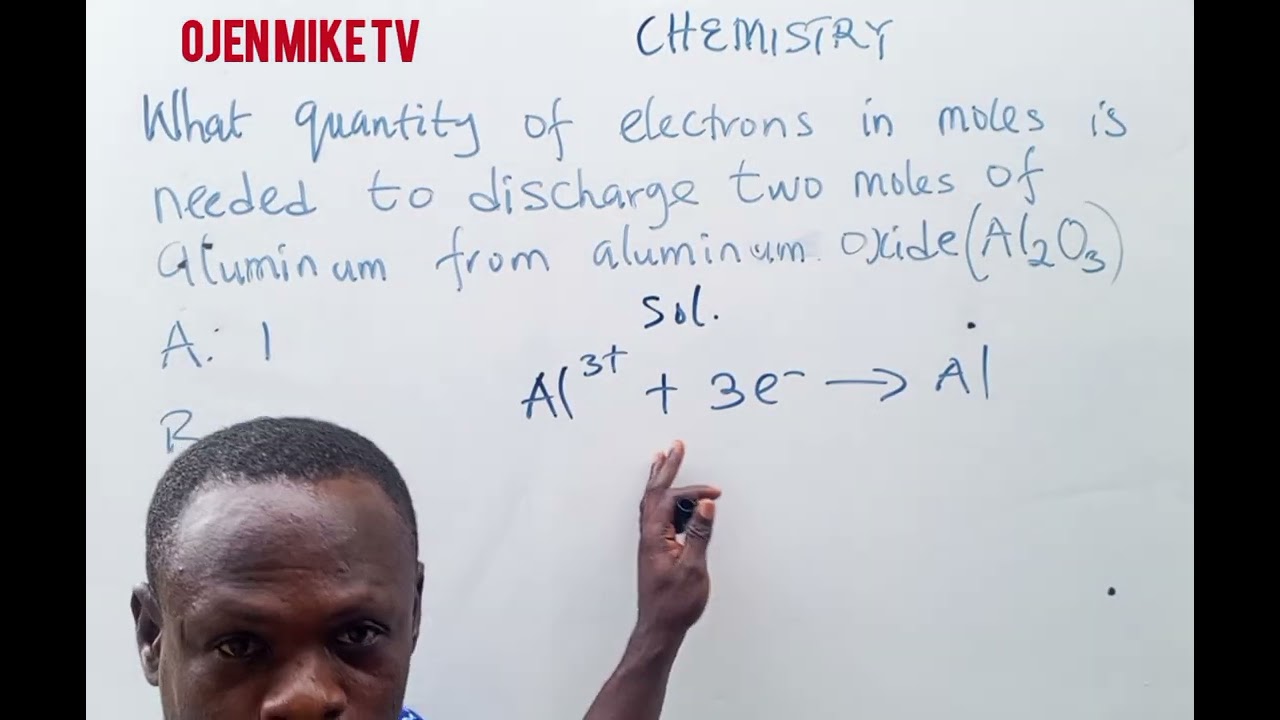 OJEN MIKE TV
CHEMISTRY
What quantity of electrons in moles is
needed to discharge two moles of
aluminum from aluminum oxide (Al₂O₃)
Sol.
A: 1
Al³⁺ + 3e⁻ → Al
B